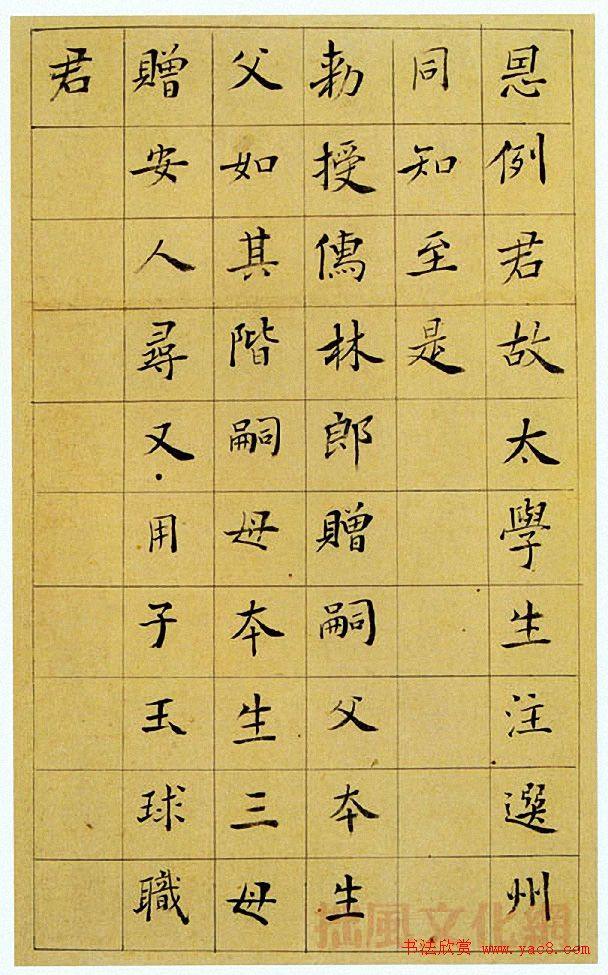 恩例君故太學生注選州
同知至是
勅授儒林郎贈嗣父本生
父如其階嗣母本生三母
贈安人尋又用子玉球職
君
書法欣赏 www.yac8.com